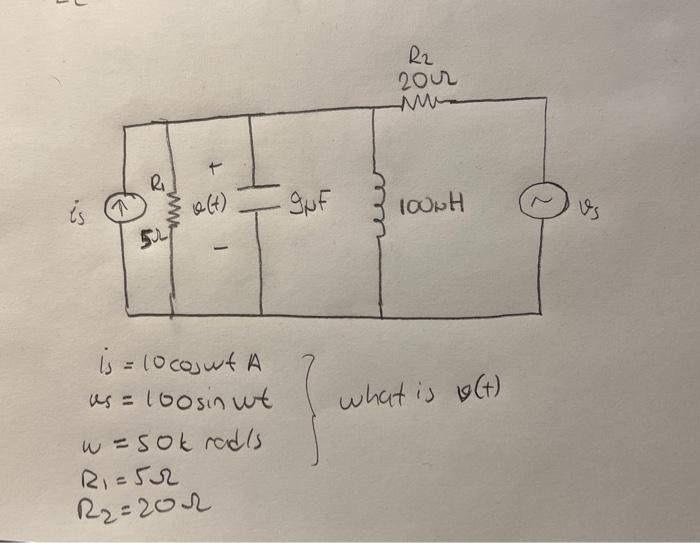 R2
20Ω
is
R1
5Ω
+
v(t)
−
9μF
100μH
~
vs
is = 10coswt A
vs = 100sin wt
w = 50k rad/s
R1 = 5Ω
R2 = 20Ω
what is v(t)